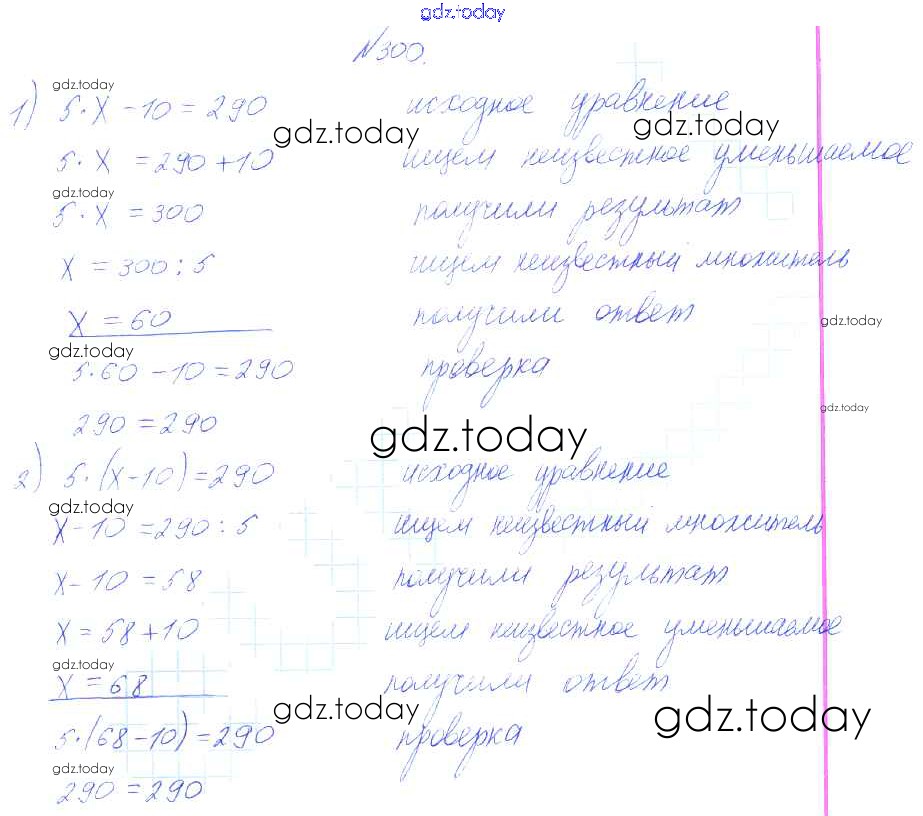 gdz.today
№300.
gdz.today
1) 5·x-10=290 исходное уравнение
gdz.today gdz.today
5·x=290+10 ищем неизвестное уменьшаемое
gdz.today
5·x=300 получили результат
x=300:5 ищем неизвестный множитель
x=60 получили ответ
gdz.today
gdz.today
5·60-10=290 проверка
gdz.today
290=290
gdz.today
2) 5·(x-10)=290 исходное уравнение
gdz.today
x-10=290:5 ищем неизвестный множитель
x-10=58 получили результат
x=58+10 ищем неизвестное уменьшаемое
gdz.today
x=68 получили ответ
gdz.today gdz.today
5·(68-10)=290 проверка
gdz.today
290=290